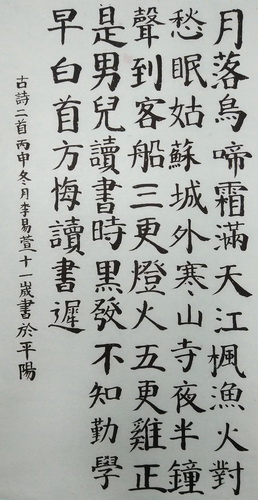 月落烏啼霜滿天江楓漁火對
愁眠姑蘇城外寒山寺夜半鐘
聲到客船三更燈火五更雞正
是男兒讀書時黑發不知勤學
早白首方悔讀書遲
古詩二首丙申冬月李易萱十一歲書於平陽